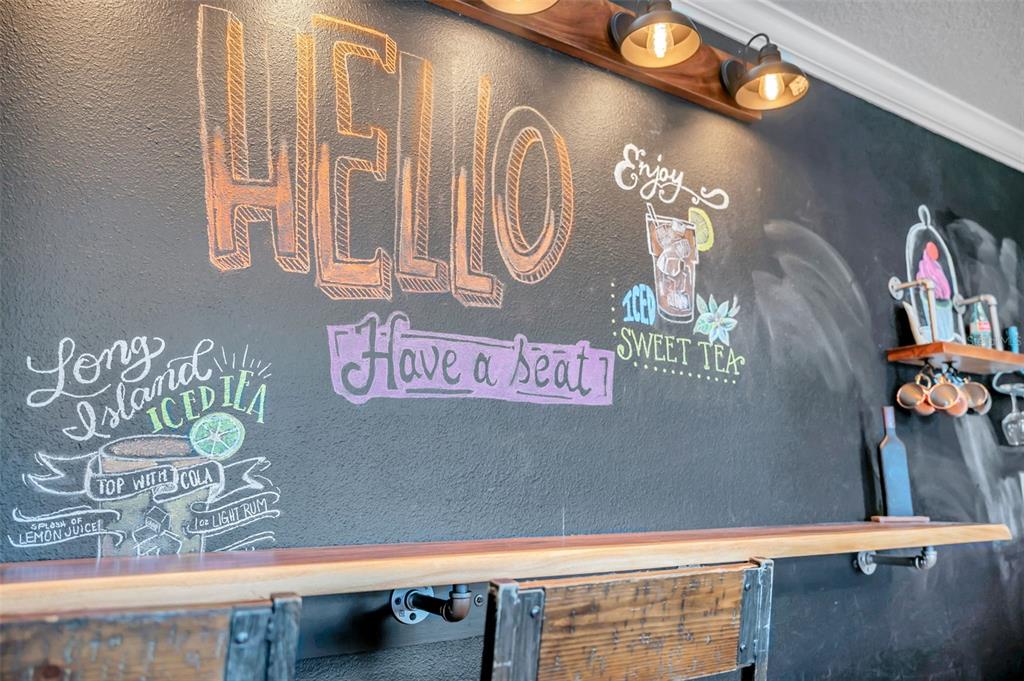 HELLO
Have a seat
Enjoy
ICED
SWEET TEA
Long
Island
ICED TEA
TOP WITH COLA
SPLASH OF
LEMON JUICE
1oz LIGHT RUM